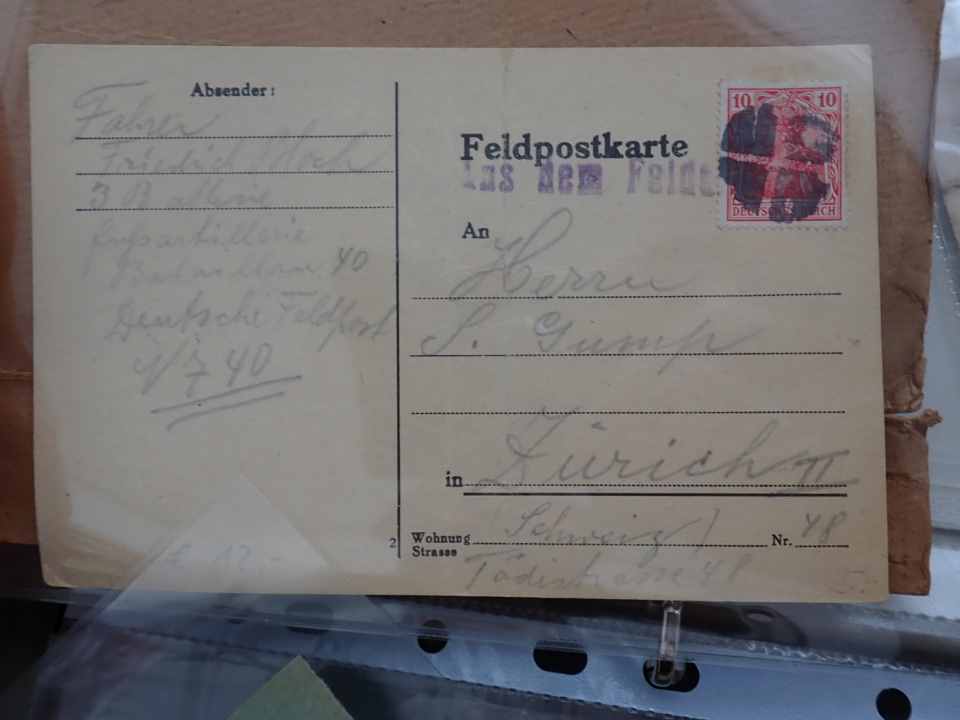 Absender:
Fahrer
Friedrich
3 Batterie
Fussartillerie
Bataillon 40
Deutsche Feldpost
40
2
10 10
DEUTSCHES REICH
Feldpostkarte
Aus dem Felde
An
Herrn
S. Gump
in Zürich II
(Schweiz)
Wohnung
Strasse
Nr. 48
Tödistrasse 48